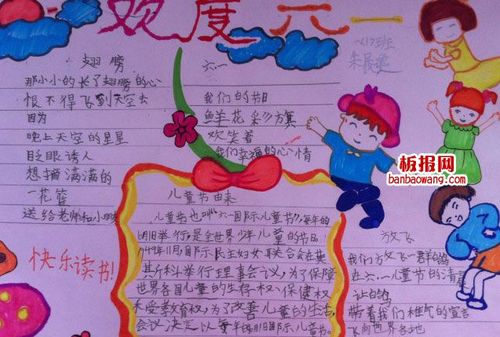 欢度六一
翅膀
那小小的长了翅膀的心
恨不得飞到天空去
因为
晚上天空的星星
眨眼诱人
想摘满满的
一花篮
送给老师和小
六一
我们的节日
鲜花彩旗
欢笑着
我们幸福的心情
板报网
banbaowang.com
儿童节由来
儿童节也叫"六一国际儿童节",每年的
月1日举行,是全世界少年儿童的节日
国际民主妇女联合会在莫
斯科举行理事会议,为了保障
世界各国儿童的生存权、保健权
和受教育权,为了改善儿童的生活,
会议决定以每年的6月1日国际儿童节
快乐读书!
放飞
我们放飞一群鸽
在六一儿童节的清晨
让白鸽
带着我们稚气的宣言
飞向世界各地